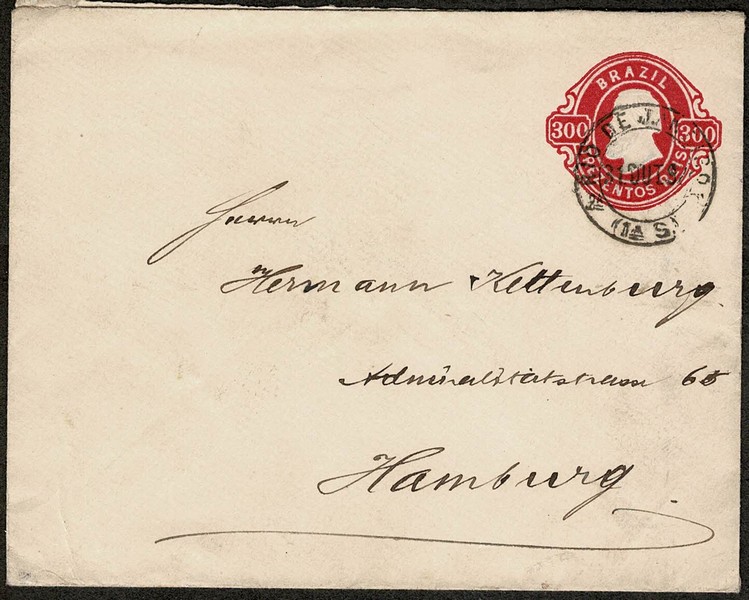 BRAZIL
300 300
RIO DE JANEIRO
31 OUT
(1ª S)
Herrn
Hermann Kettenburg
Admiralitätstrasse 65
Hamburg